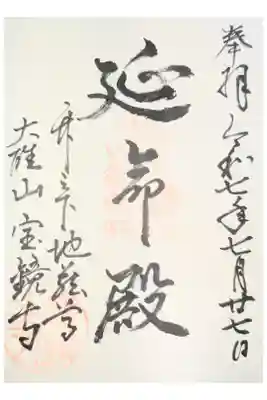 奉拝 令和七年七月廿七日
延命殿
日下地蔵尊
大雄山宝鏡寺